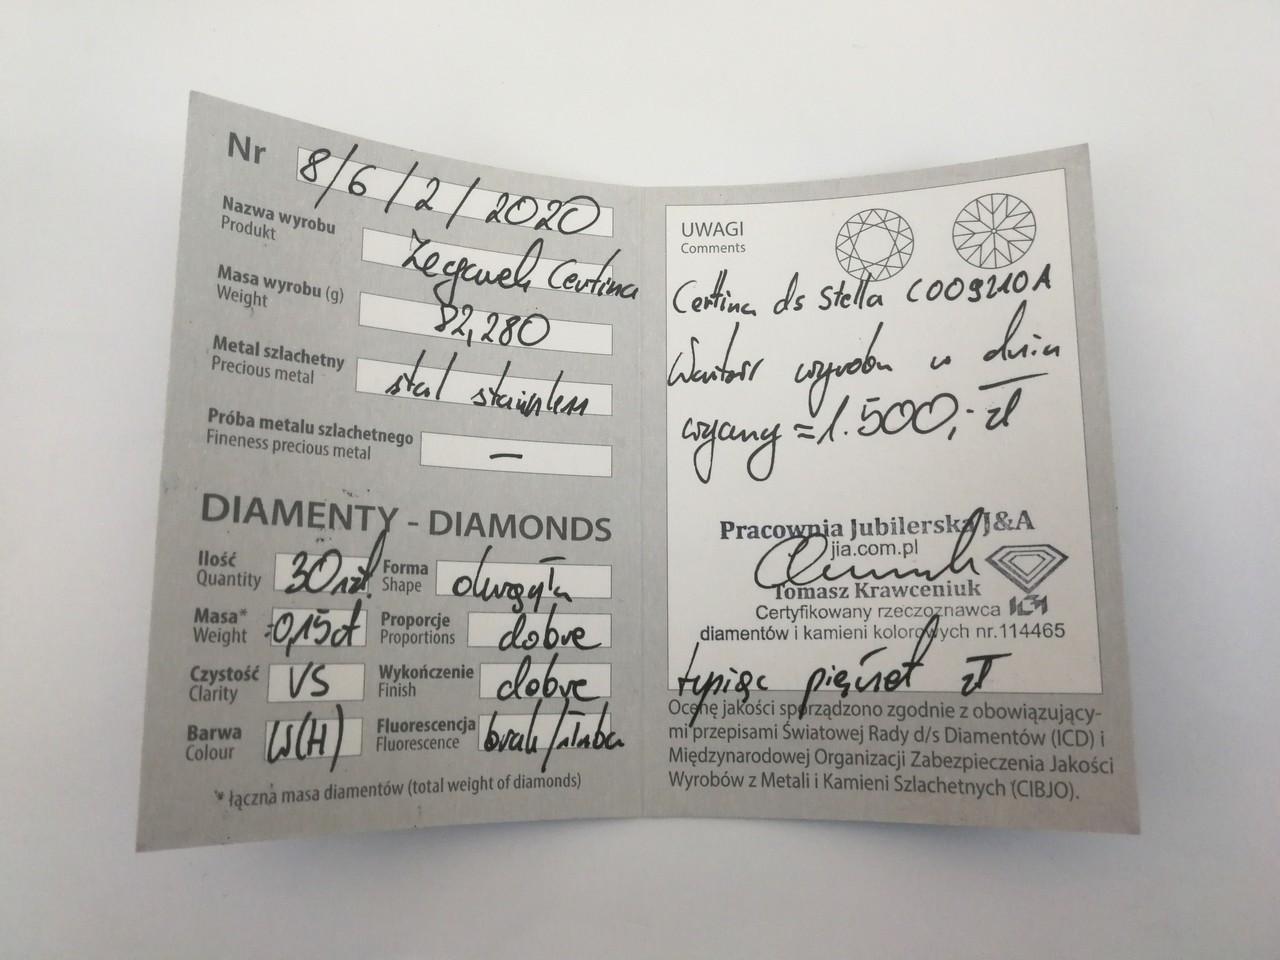 Nr 8/6/2/2020
Nazwa wyrobu Zegarek Certina
Produkt
Masa wyrobu (g) 82,280
Weight
Metal szlachetny stal stainless
Precious metal
Próba metalu szlachetnego —
Fineness precious metal
DIAMENTY - DIAMONDS
Ilość 30szt. Forma okrągła
Quantity Shape
Masa* 0,15ct Proporcje dobre
Weight Proportions
Czystość VS Wykończenie dobre
Clarity Finish
Barwa W(H) Fluorescencja brak/słaba
Colour Fluorescence
* łączna masa diamentów (total weight of diamonds)
UWAGI
Comments
Certina ds Stella C009210A
Wartość wyrobu w dniu
wyceny = 1.500,- zł
Pracownia Jubilerska J&A
jia.com.pl
Tomasz Krawceniuk
Certyfikowany rzeczoznawca
diamentów i kamieni kolorowych nr.114465
tysiąc pięćset zł
Ocenę jakości sporządzono zgodnie z obowiązujący-
mi przepisami Światowej Rady d/s Diamentów (ICD) i
Międzynarodowej Organizacji Zabezpieczenia Jakości
Wyrobów z Metali i Kamieni Szlachetnych (CIBJO).